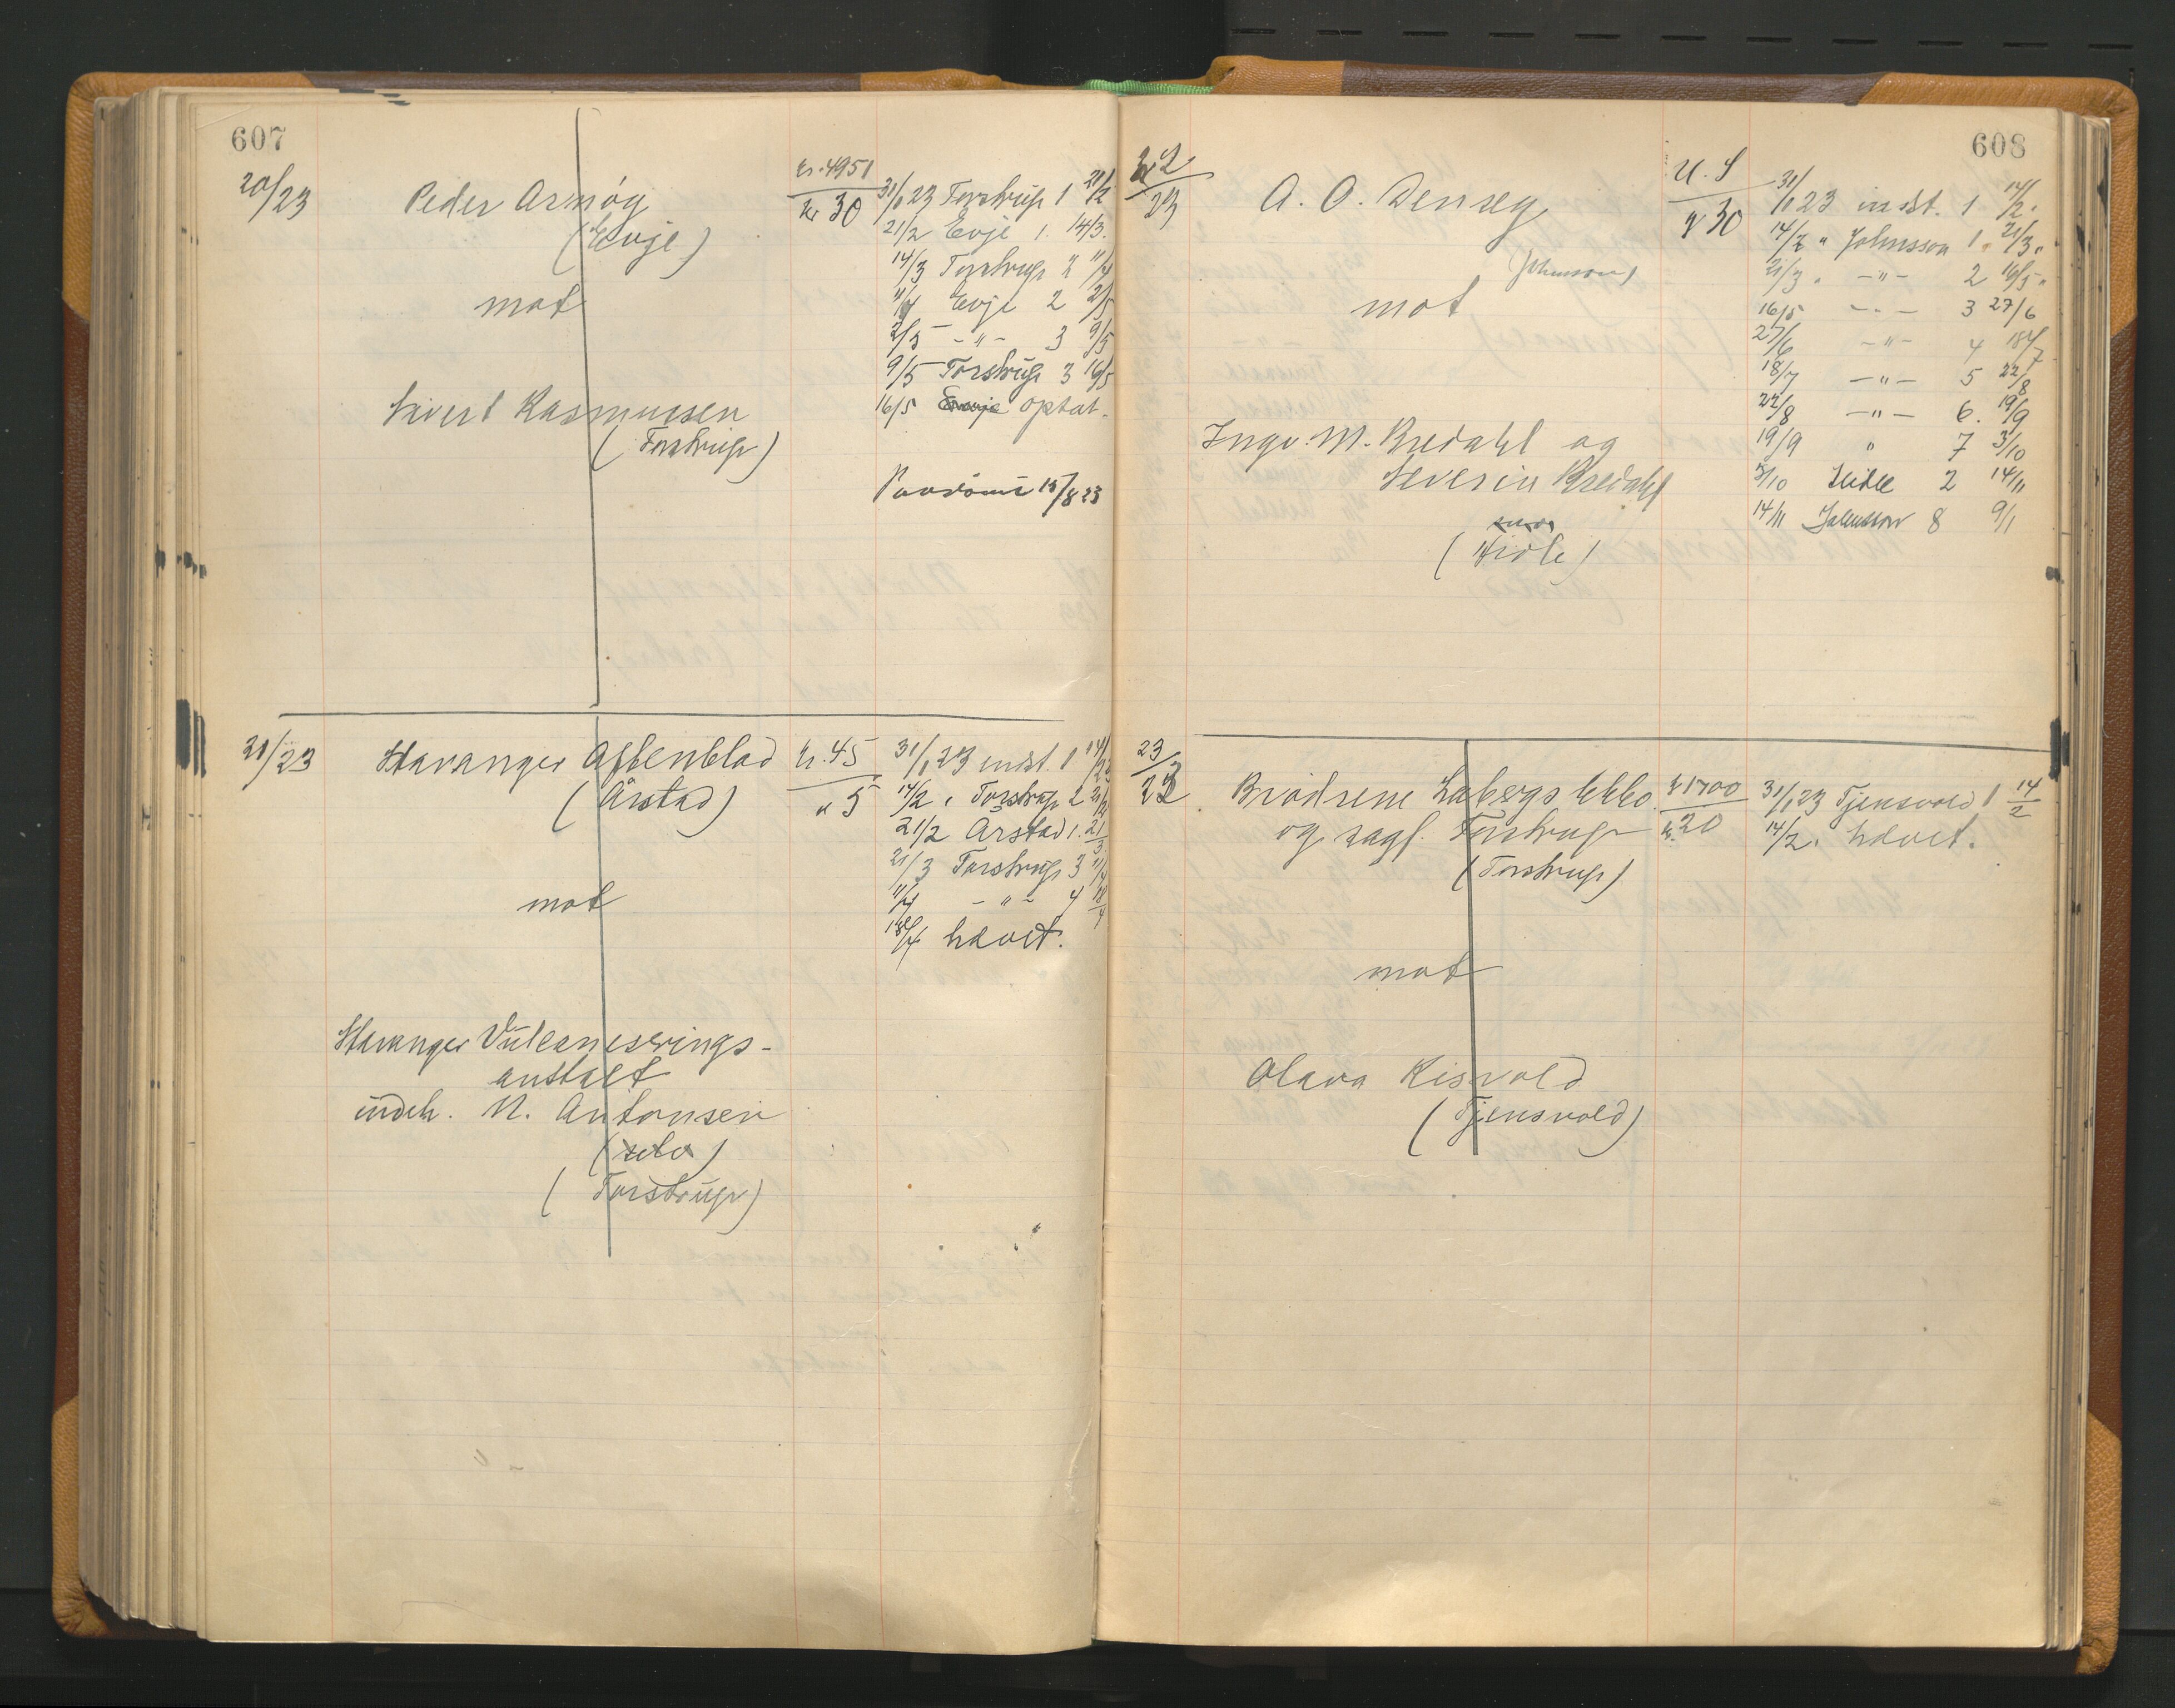 607
20/23
Peder Arnøy
(Evje)
mot
Sivert Rasmussen
(Torstrup)
kr. 4951
kr 30
31/1 23 Torstrup 1 21/2
21/2 Evje 1. 14/3.
14/3 Torstrup 2 11/4
11/4 Evje 2 2/5
2/5 - " - 3 9/5
9/5 Torstrup 3 16/5
16/5 Evje optat.
Paadømt 15/8 23
21/23
Stavanger Aftenblad
(Årstad)
mot
Stavanger Vulcaniserings-
anstalt
indeh. N. Antonsen
(selv)
(Torstrup)
kr. 45
" 5
31/1 23 indst. 1 14/2
14/2 " Torstrup 2 21/2
21/2 Årstad 1. 21/3
21/3 Torstrup 3 11/4
11/4 - " - 4 18/4
18/4 hævet.
608
22/23
A. O.
(Johnsson)
mot
Ingv. M. Bredahl og
Severin Bredahl
(Hidle)
U. S
kr 30
31/1 23 indst. 1 14/2.
14/2 " Johnsson 1. 21/3 "
21/3 " - " - 2 16/5 "
16/5 - " - 3 27/6
27/6 - " - 4 18/7
18/7 - " - 5 22/8
22/8 - " - 6. 19/9
19/9 " 7 3/10
3/10 Hidle 2 14/11
14/11 Johnsson 8 9/1
23/23
Brødrene
og sagf. Torstrup
(Torstrup)
mot
Olava Risvold
(Tjensvold)
kr 1700
kr. 20
31/1 23 Tjensvold 1 14/2
14/2. hævet.